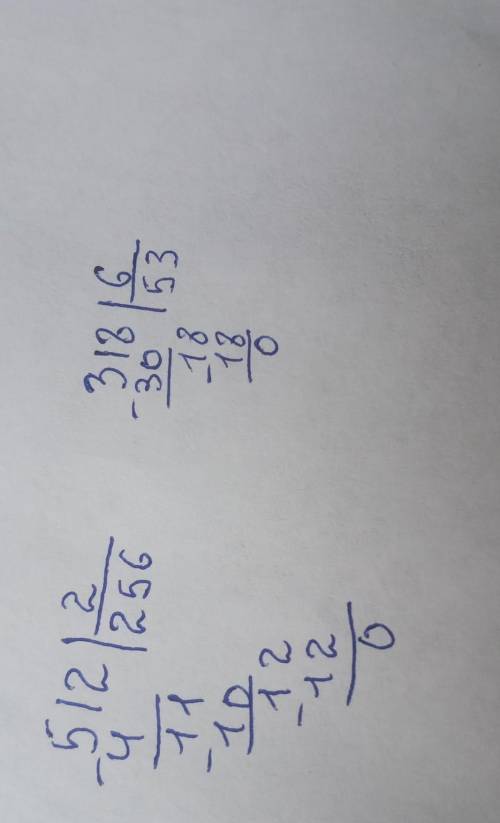 -512|2
4 |256
11
-10
12
-12
0
-318|6
30|53
-18
18
0